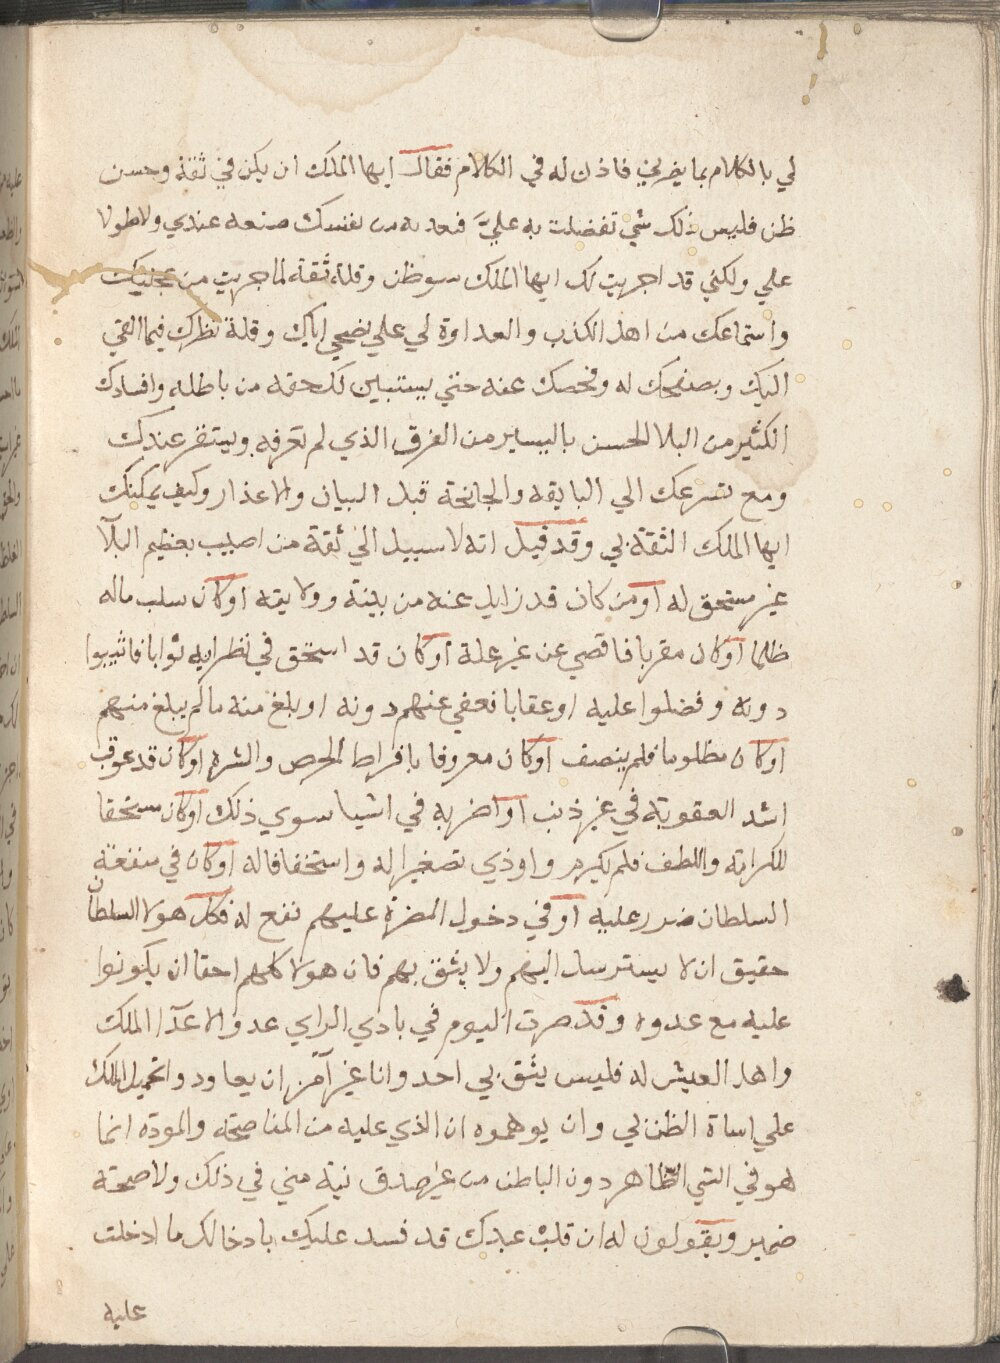 لي بالكلام بما يضرني فاذن له في الكلام فقال ايها الملك ان يكن في ثقة وحسن
ظن فليس ذلك شي تفضلت به عليّ فتعد به من نفسك صنعه عندي ولا طولا
علي ولكني قد اجريت لك ايها الملك سوظن وقلة ثقة لما جربت من تجنيك
واستماعك من اهل الكذب والعداوة لي علي نصحي اياك وقلة نظرك فيما القي
اليك وبصفحك له وفحصك عنه حتي يستبين لك حقه من باطله وافسادك
الكثير من البلا الحسن باليسير من الغرق الذي لم تعرفه ويستقر عندك
ومع تسرعك الي البايقه والجانحة قبل البيان والاعذار وكيف يمكنك
ايها الملك الثقة بي وقد قيل انه لا سبيل الي ثقة من اصيب بعظيم البلآ
غير مستحق له او من كان قد زايل عنه من بينة وولايته اوكان سلب ماله
ظلما اوكان مقربا فاقصي عن غير علة اوكان قد استحق في نظرايه ثوابا فاثيبوا
دونه وفضلوا عليه او عقابا نعفي عنهم دونه او بلغ منه ما لم يبلغ منهم
اوكان مظلوما فلم ينصف اوكان معروفا بافراط الحرص والشره اوكان قد عوقب
اشد العقوبة في غير ذنب او اضر به في اشيا سوي ذلك اوكان مستحقا
للكرامه واللطف فلم يكرم واوذي تصغيرا له واستخفافا له اوكان في منفعة
السلطان ضرر عليه اوفي دخول المضرة عليهم نفع له فكل هولا السلطان
حقيق ان لا يسترسل اليهم ولا يثق بهم فان هولا كلهم احقا ان يكونوا
عليه مع عدوه وقد صرت اليوم في بادي الراي عدو الاعدآ الملك
واهل العيش له فليس يثق بي احد وانا غير آمن ان يعاود واتحميل الملك
علي اساة الظن لي وان يوهموه ان الذي عليه من المناصحة والموده انما
هو في الشي الظاهر دون الباطن من غير صدق نية مني في ذلك ولا صحة
ضمير ويقولون له ان قلب عبدك قد فسد عليك بادخالك ما ادخلت
عليه